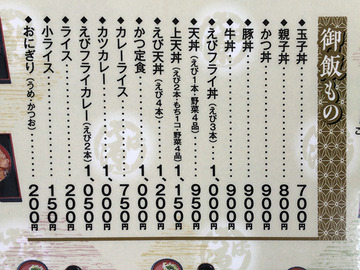 御飯もの
◆玉子丼………700円
◆親子丼………800円
◆かつ丼………900円
◆豚丼………900円
◆牛丼………900円
◆えびフライ丼(えび3本)…1,000円
◆天丼(えび1本・野菜4品)…950円
◆上天丼(えび2本・もち1コ・野菜4品)1,150円
◆えび天丼(えび4本)…1,200円
◆かつ定食………1,000円
◆カレーライス………750円
◆カツカレー………1,000円
◆えびフライカレー(えび2本)1,050円
◆ライス………200円
◆小ライス………150円
◆おにぎり(うめ・かつお)…200円